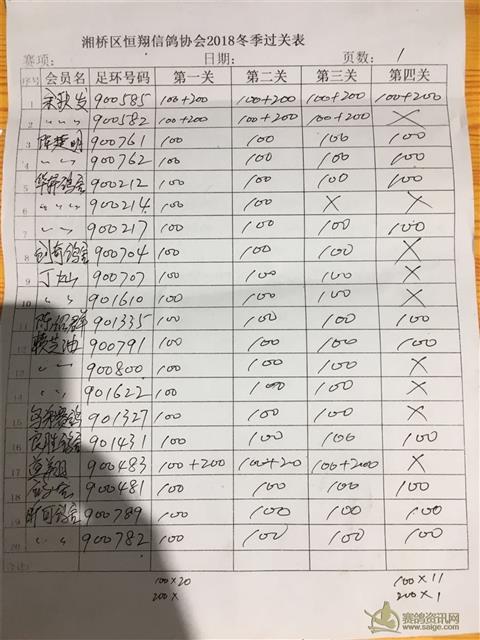 湘桥区恒翔信鸽协会2018冬季过关表
赛项: 日期: 页数: 1
序号 会员名 足环号码 第一关 第二关 第三关 第四关
1 900585 100+200 100+200 100+200 100+200
2 〃 〃 〃 900582 100+200 100+200 100+200 X
3 陈楚明 900761 100 100 100 100
4 〃 〃 900762 100 100 100 100
5 900212 100 100 100 100
6 〃 〃 〃 900214 100 100 X X
7 〃 〃 900217 100 100 100 100
8 900704 100 100 100 X
9 丁灿 900707 100 100 100 X
10 〃 〃 901610 100 100 100 X
11 901335 100 100 100 100
12 900791 100 100 100 100
13 〃 〃 900800 100 100 100 X
14 〃 〃 901622 100 100 100 X
15 901327 100 100 100 X
16 901431 100 100 100 100
17 900483 100+200 100+20 100+200 X
18 900481 100 100 100 100
19 900789 100 100 100 100
20 〃 〃 900782 100 100 100 100
100×20 100×11
200× 200×1
赛鸽资讯网
www.saige.com